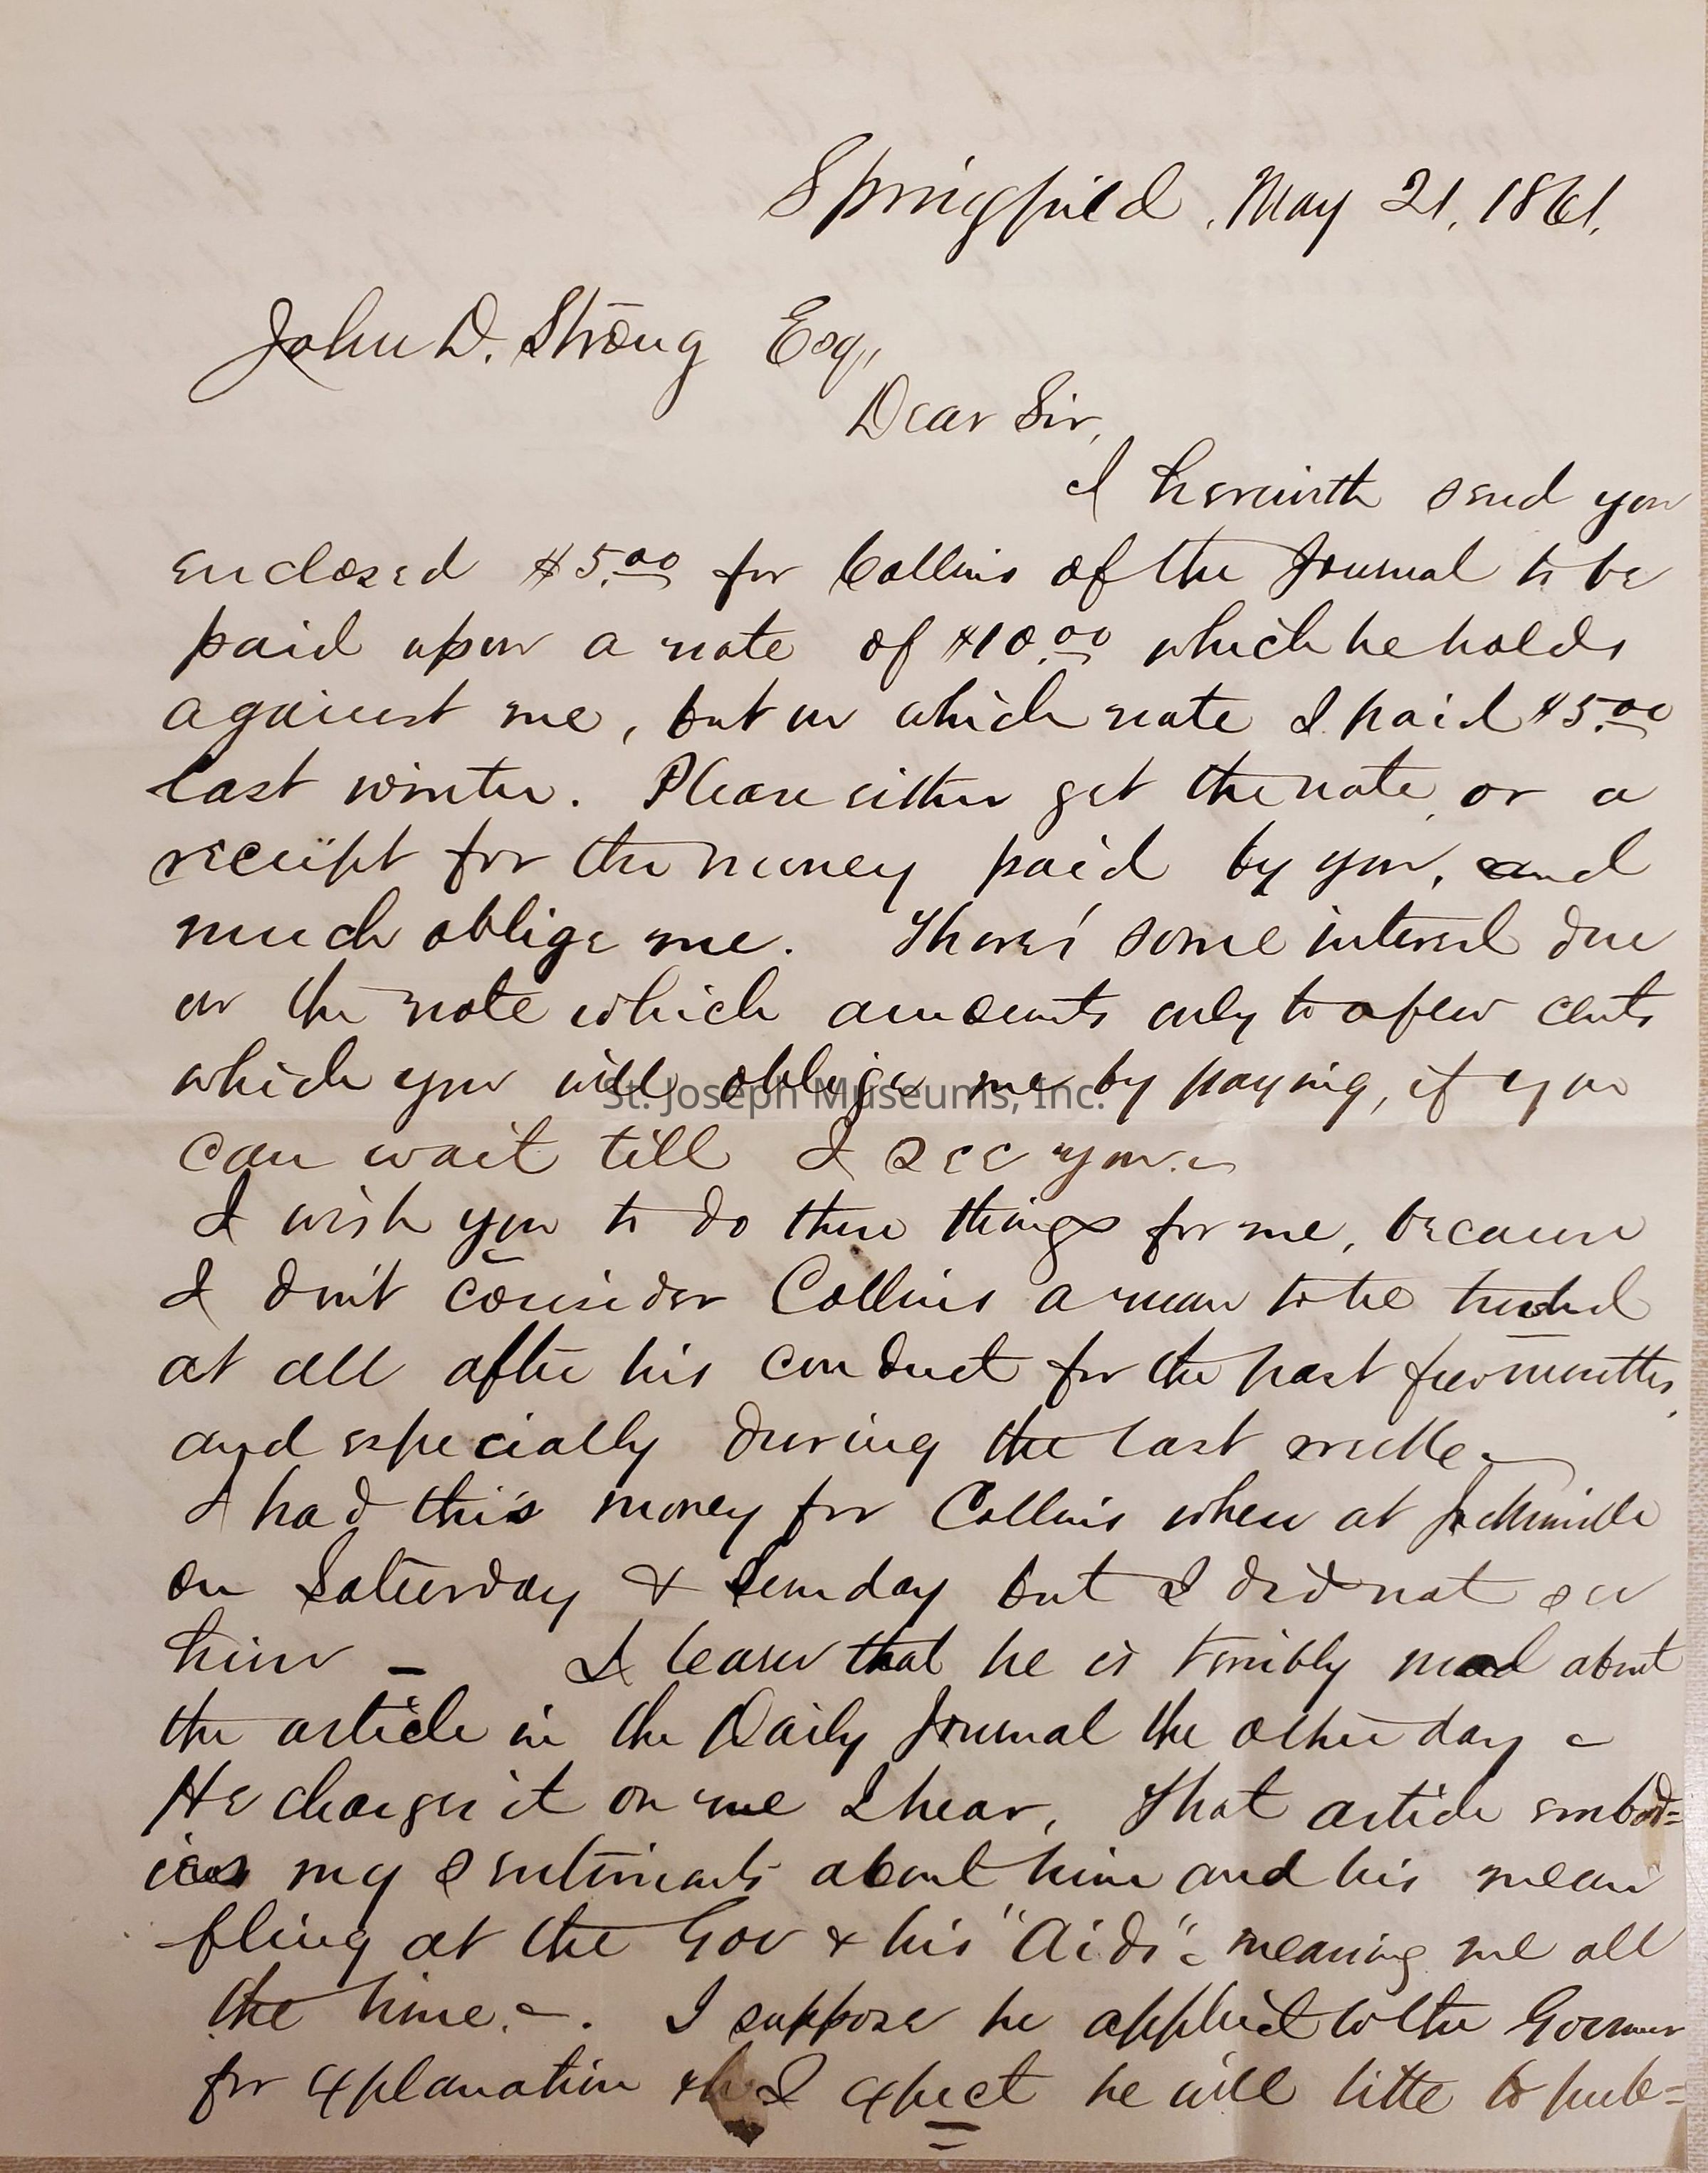 Springfield, May 21, 1861.
John D. Strong Esq,
Dear Sir,
I herewith send you
enclosed $5.00 for Collins of the Journal to be
paid upon a note of $10.00 which he holds
against me, but on which note I paid $5.00
last winter. Please either get the note, or a
receipt for the money paid by you, and
much oblige me. There's some interest due
on the note which amounts only to a few cents
which you will oblige me by paying, if you
St. Joseph Museums, Inc.
can wait till I see you.
I wish you to do these things for me, because
I don't consider Collins a man to be trusted
at all after his conduct for the past few months,
and especially during the last week.
I had this money for Collins when at Jacksonville
on Saturday & Sunday but I did not see
him - I learn that he is terribly mad about
the article in the Daily Journal the other day -
He charges it on me I hear, That article embod=
ies my sentiments about him and his mean
fling at the Gov & his "Aids" - meaning me all
the time. - . I suppose he applied to the Governor
for explanation I expect he will to pub=